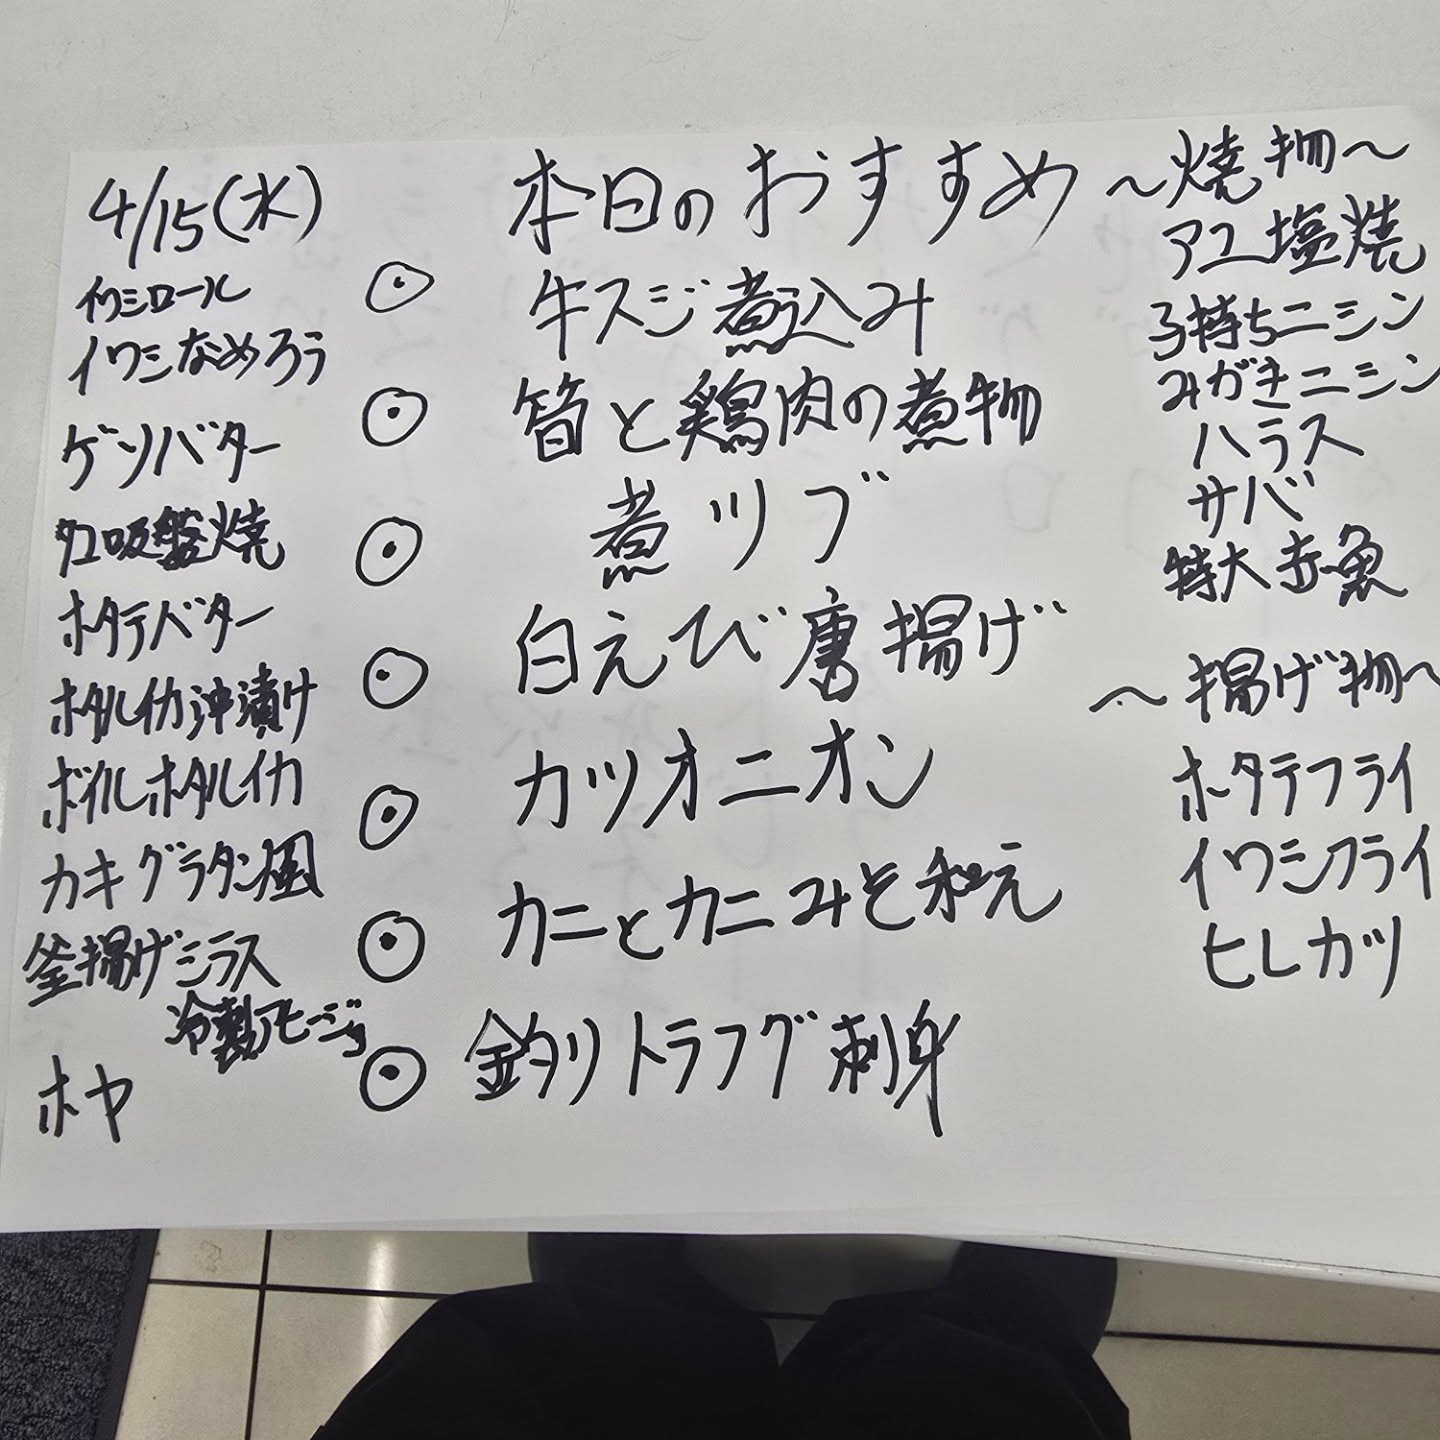 4/15(水)
イワシロール
イワシなめろう
ゲソバター
タコ吸盤焼
ホタテバター
ホタルイカ沖漬け
ボイルホタルイカ
カキグラタン風
釜揚げシラス
冷製アヒージョ
ホヤ
本日のおすすめ
◎ 牛スジ煮込み
◎ 筍と鶏肉の煮物
◎ 煮ツブ
◎ 白えび唐揚げ
◎ カツオニオン
◎ カニとカニみそ和え
◎ 釣りトラフグ刺身
～焼物～
アユ塩焼
子持ちニシン
みがきニシン
ハラス
サバ
特大赤魚
～揚げ物～
ホタテフライ
イワシフライ
ヒレカツ